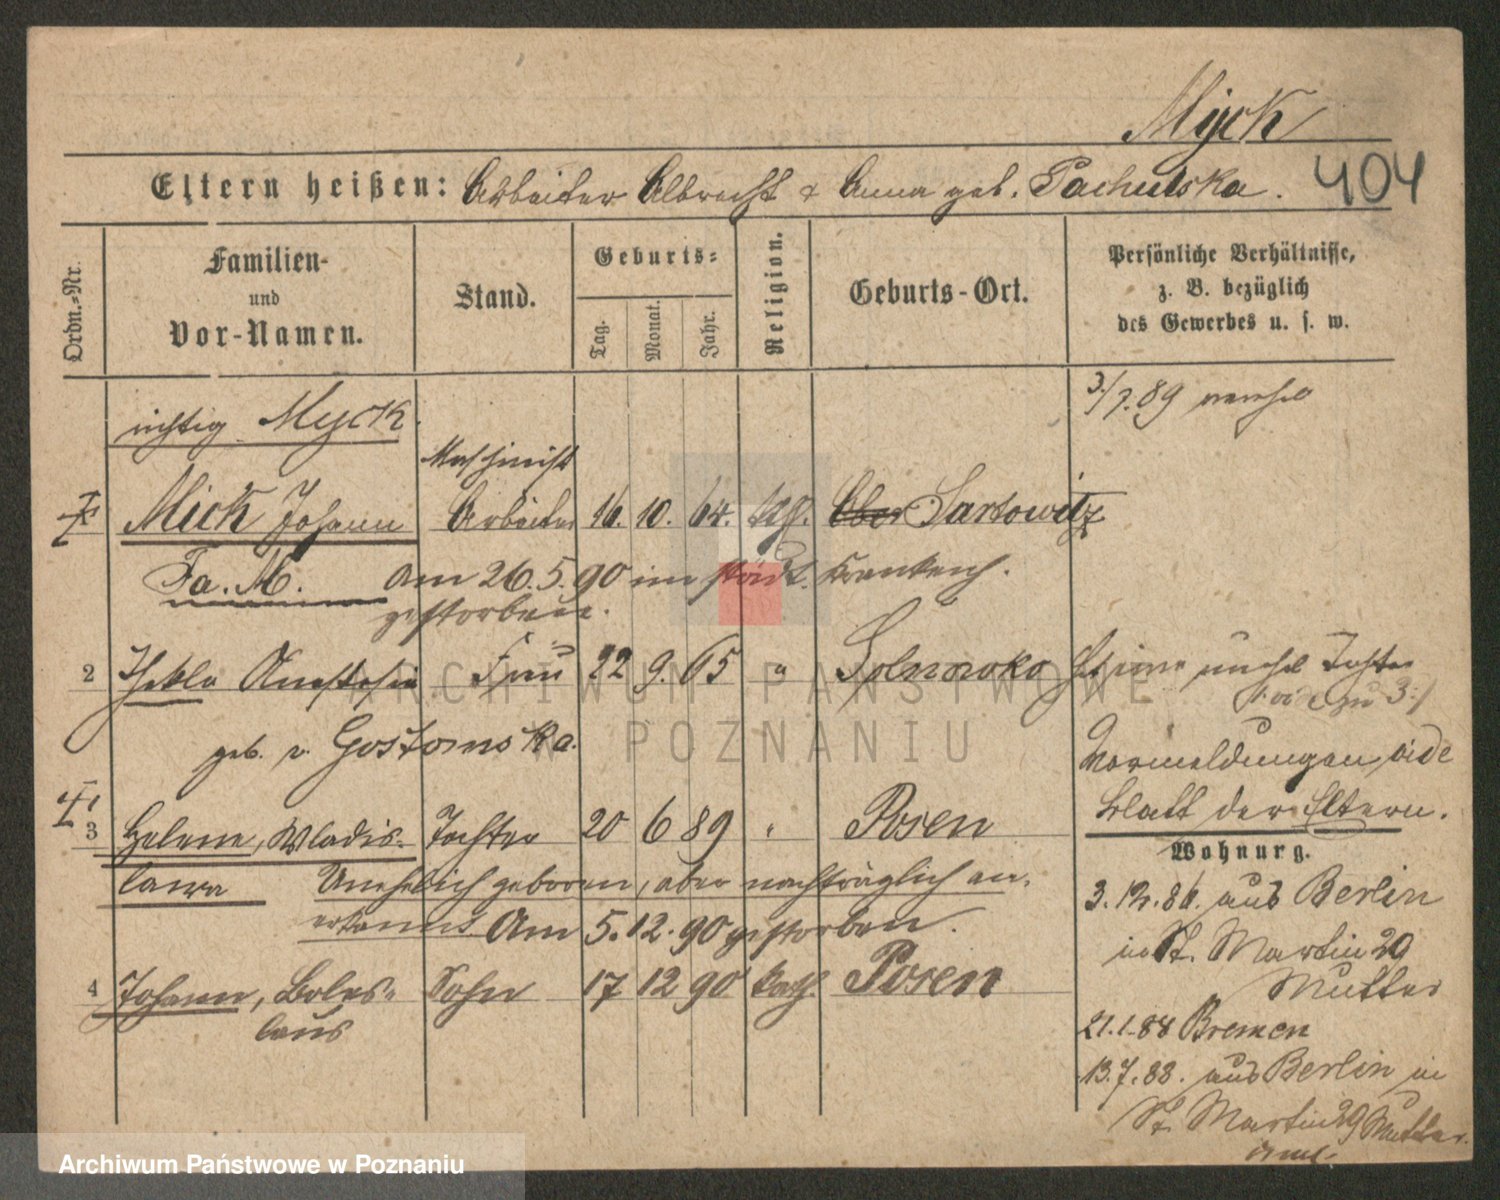 Myck
Eltern heißen: Arbeiter Albrecht & Anna geb. Pachulska.
404
Ordn.=Nr.
Familien-
und
Vor-Namen.
Stand.
Geburts=
Tag.
Monat.
Jahr.
Religion.
Geburts-Ort.
Persönliche Verhältnisse,
z. B. bezüglich
des Gewerbes u. s. w.
richtig Myck.
3/7.89
Maschinist
Mick Johann Arbeiter 16. 10. 64. kth. Ober Sartowitz
Fa. M. Am 26.5.90 im städt. Krankenh.
gestorben.
2 Thekla Anastasia Frau 22 9. 65 "
geb. v. Gostomska.
Hat eine unehel Tochter
Vormeldungen vide
Blatt der Eltern.
3 Helene, Wladis- Tochter 20 6 89 " Posen
lawa Unehelich geboren, aber nachträglich an-
erkannt Am 5.12.90 gestorben.
4 Johann, Boles- Sohn 17 12 90 kath. Posen
laus
Wohnung.
3.12.86. aus Berlin
in St. Martin 29
Mutter
21.1.88 Bremen
13.7.88. aus Berlin in
St. Martin 29 Mutter.
ARCHIWUM PAŃSTWOWE
W POZNANIU
Archiwum Państwowe w Poznaniu